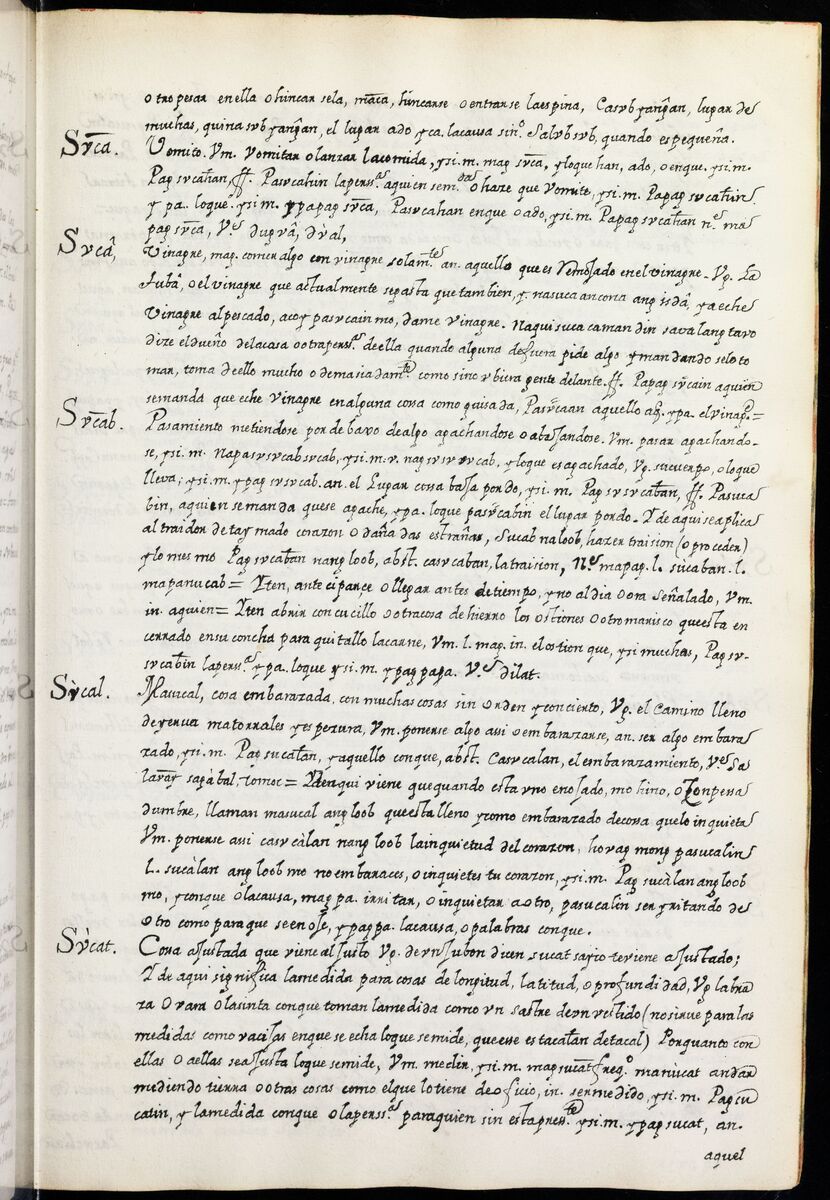 otro pesar en ella o hincar sela, maca, hincarse o entrarse la espina, Casvbyangan, lugar de
muchas, quinasvbyangan, el lugar ado y ca. la causa sin.º Salvbsvb, quando es pequeña.
Svca. Vomito. Vm. Vomitar o lanzar la comida, y si. m. mag svca, y lo que han, ado, o en que. y si. m.
Pagsvcahan, ff. Pasvcahin la perss.ª a quien sem. o haze que Vomite, y si. m. Papagsvcahin
y pa. lo que. y si. m. ypapag svca, Pasvcahan en que o ado, y si. m. Papagsvcahan n.º ma
pag svca, V.e duqvâ, dùal,
Svcâ, Vinagre, mag. comer algo con vinagre solam.te an. aquello que es Remojado en el vinagre. Vg. La
Jubâ, o el vinagre que actualmente se gasta que tambien, y. nasuca ancona ang isdâ, ya eche
Vinagre al pescado, acoy pasvcain mo, dame vinagre. Naquisuca caman din sa valang tavo
dize el dueño de la casa o otra perss.ª de ella quando alguna de fuera pide algo y mandando selo to
mar, toma de ello mucho o demasiadam.te como sino vbiera gente delante. ff. Papag svcain a quien
se manda que eche Vinagre en alguna cosa como guisada, Pasvcaan aquello al q. y pa. el vinag.e=
Svcab. Pasamiento metiendose por debaxo de algo agachandose o abajandose. Vm. pasar agachando-
se, y si. m. Napasvsvcabsvcab, y si. m. v. nagsvsvcab, y lo que es agachado, Vg. su cuerpo, o lo que
lleva; y si. m. ypagsvsvcab. an. el Lugar cosa baja por do, y si. m. Pagsvsvcaban, ff. Pasuca
bin, a quien se manda que se agache, y pa. lo que pasvcabin el lugar por do. Y de aqui se aplica
al traidor de taymado corazon o dañadas estrañas, Sucab na loob, hazer traision (o proceder)
y lo mesmo Pagsvcaban nang loob, abst. casvcaban, la traision, N.e mapag. l. sucaban. l.
mapanucab= Yten, antecipance o llegar antes de tiempo, y no al dia o ora señalado, Vm.
in. a quien= Yten abrir con cucillo o otra cosa de hierro los ostiones o otro marisco que esta en
cerrado en su concha para quitallo la carne, Vm. l. mag. in. el ostion que, y si muchas, Pagsv-
svcabin la perss.ª y pa. lo que y si. m. y pag papa. V.e dilat.
Sùcal. Masucal, cosa embarazada, con muchas cosas sin orden y conciento, Vg. el Camino lleno
de yervas matorrales y espezura, Vm. ponerse algo assi o embarazarse, an. ser algo embara
zado, y si. m. Pagsucalan, y aquello con que, abst. Casvcalan, el embarazamiento, V.e Sa
lavay sagàbal, tomoc= Yten qui viene que quando esta vno enojado, mohino, o con pessa
dumbre, llaman masucal ang loob que esta lleno y como embarazado de cossa que lo inquieta
Vm. ponerse assi casvcàlan nang loob la inquietud del corazon, hovag mong pasucalin
L. sucàlan ang loob mo no embaraces, o inquietes tu corazon, y si. m. Pag sucàlan ang loob
mo, y con que o la causa, mag pa. irritar, o inquietar a otro, pasucalin ser yritando de
otro como para que se enoje, y pagpa. la causa, o palabras con que.
Sùcat. Cosa ajustada que viene al justo Vg. de vn Jubon dicen sucat sayio te viene ajustado;
Y de aqui significa la medida para cosas de longitud, latitud, o profundidad, Vg. la bra
za o vara o la sinta con que toman la medida como vn sastre de vn vestido (no sirve para las
medidas como vacijas en que se echa lo que se mide, que esse es tacalan de tacal) Porquanto con
ellas o a ellas se ajusta lo que se mide, Vm. medir, y si. m. mag sucat freq.º manucat andar
midiendo tierra o otras cosas como el que lo tiene de oficio, in. ser medido, y si. m. Pagsu
catin, y la medida con que o la perss.ª para quien sin esta press.te y si. m. ypag sucat, an.
aquel